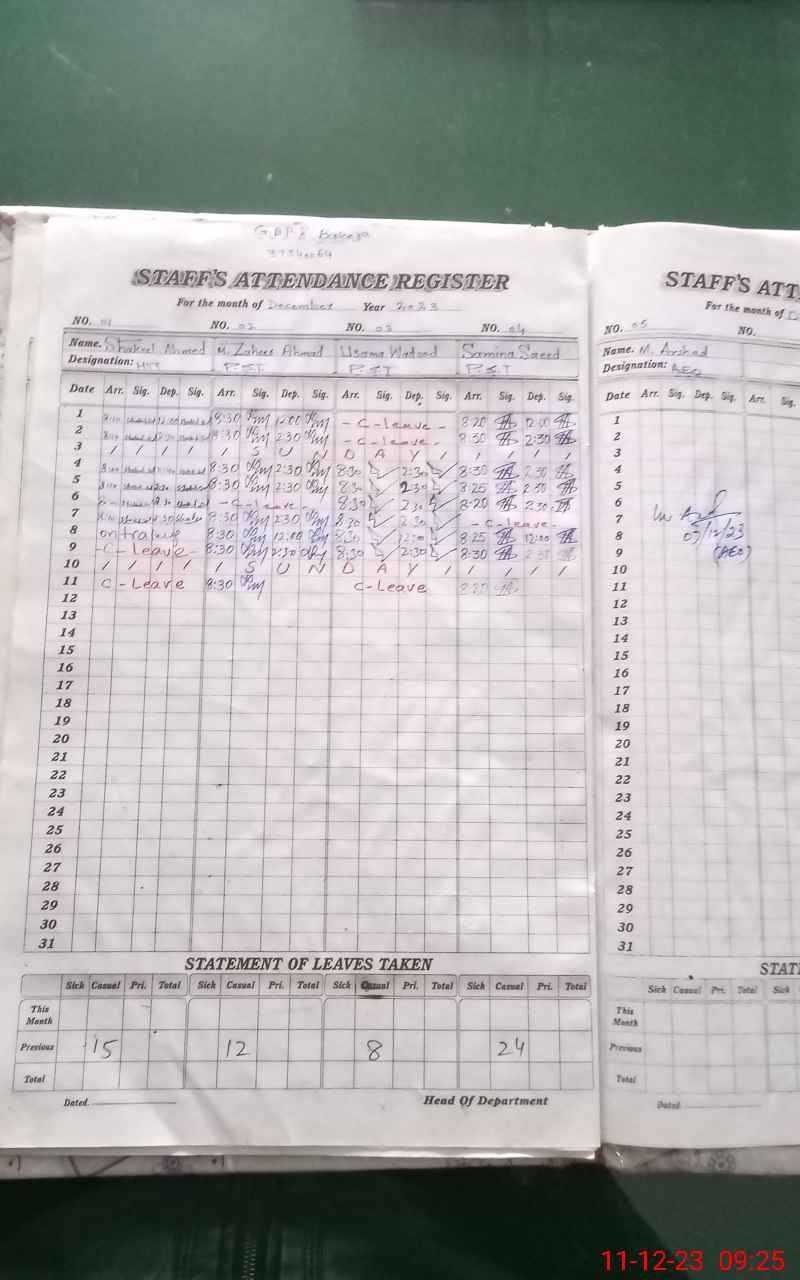 STAFF'S ATTENDANCE REGISTER
For the month of December Year 2023
NO. 01 NO. 02 NO. 03 NO. 04
Name. Shakeel Ahmed M. Zaheer Ahmad Usama Wadood Samina Saeed
Designation: PST PST PST
Date Arr. Sig. Dep. Sig. Arr. Sig. Dep. Sig. Arr. Sig. Dep. Sig. Arr. Sig. Dep. Sig.
1 8:30 12:00 - C-leave - 8:20 12:00
2 8:30 2:30 - C-leave - 8:30 2:30
3 / / / / / S U N D A Y / / / / /
4 8:30 2:30 8:30 2:30 8:30 2:30
5 8:30 2:30 8:30 2:30 8:25 2:30
6 - C-leave - 8:30 2:30 8:20 2:30
7 8:30 2:30 8:30 2:30 - C-leave -
8 8:30 12:00 8:30 12:00 8:25 12:00
9 - C-leave - 8:30 2:30 8:30 2:30 8:30 2:30
10 / / / / / S U N D A Y / / / / /
11 C-Leave 8:30 C-Leave 8:20
12
13
14
15
16
17
18
19
20
21
22
23
24
25
26
27
28
29
30
31
STATEMENT OF LEAVES TAKEN
Sick Casual Pri. Total Sick Casual Pri. Total Sick Casual Pri. Total Sick Casual Pri. Total
This Month
Previous 15 12 8 24
Total
Dated. Head Of Department
STAFF'S ATT
For the month of D
NO. 05 NO.
Name. M. Arshad
Designation: AEO
Date Arr. Sig. Dep. Sig. Arr. Sig.
1
2
3
4
5
6
7
8
9
10
11
12
13
14
15
16
17
18
19
20
21
22
23
24
25
26
27
28
29
30
31
(AEO)
STATE
Sick Casual Pri. Total Sick
This Month
Previous
Total
Dated.
11-12-23 09:25